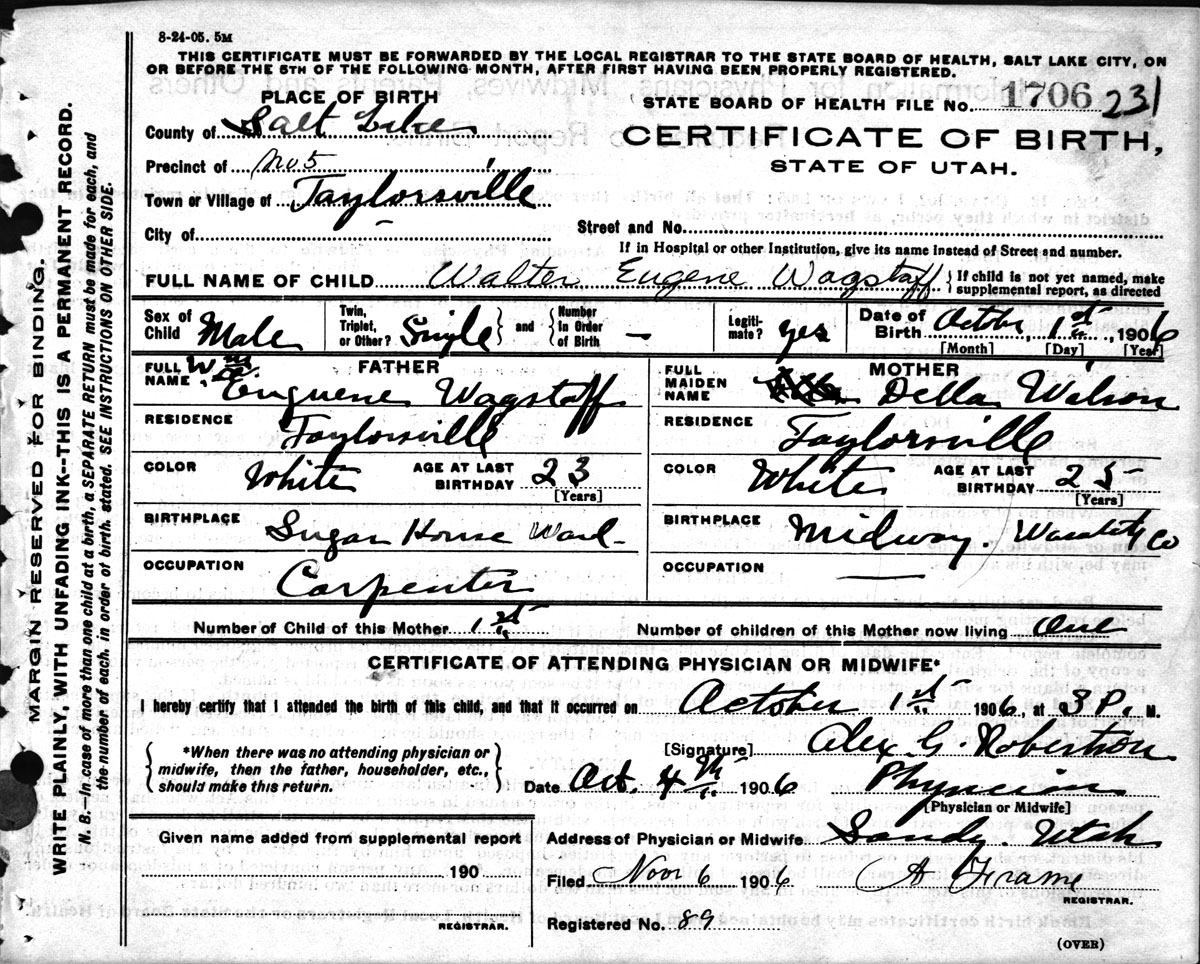 8-24-05. 5M
THIS CERTIFICATE MUST BE FORWARDED BY THE LOCAL REGISTRAR TO THE STATE BOARD OF HEALTH, SALT LAKE CITY, ON
OR BEFORE THE 5TH OF THE FOLLOWING MONTH, AFTER FIRST HAVING BEEN PROPERLY REGISTERED.
MARGIN RESERVED FOR BINDING.
WRITE PLAINLY, WITH UNFADING INK--THIS IS A PERMANENT RECORD.
N. B.—In case of more than one child at a birth, a SEPARATE RETURN must be made for each, and
the number of each, in order of birth, stated. SEE INSTRUCTIONS ON OTHER SIDE.
PLACE OF BIRTH
County of Salt Lake
Precinct of No 5
Town or Village of Taylorsville
City of -
STATE BOARD OF HEALTH FILE No. 1706 231
CERTIFICATE OF BIRTH,
STATE OF UTAH.
Street and No.
If in Hospital or other Institution, give its name instead of Street and number.
FULL NAME OF CHILD Walter Eugene Wagstaff { If child is not yet named, make
supplemental report, as directed
Sex of Child Male
Twin, Triplet, or Other? Single } and { Number In Order of Birth —
Legitimate? yes
Date of Birth October, 1st, 1906
[Month] [Day] [Year]
FATHER
FULL NAME Wm Euguene Wagstaff
RESIDENCE Taylorsville
COLOR White AGE AT LAST BIRTHDAY 23
[Years]
BIRTHPLACE Sugar House Ward
OCCUPATION Carpenter
MOTHER
FULL MAIDEN NAME Della Wilson
RESIDENCE Taylorsville
COLOR White AGE AT LAST BIRTHDAY 25
[Years]
BIRTHPLACE Midway. Wasatch Co
OCCUPATION —
Number of Child of this Mother 1st Number of children of this Mother now living One
CERTIFICATE OF ATTENDING PHYSICIAN OR MIDWIFE*
I hereby certify that I attended the birth of this child, and that it occurred on October 1st 1906, at 3 P. M.
{ *When there was no attending physician or
midwife, then the father, householder, etc.,
should make this return. }
[Signature] Alex G. Robertson
Date Oct. 4th 1906 Physician
[Physician or Midwife]
Given name added from supplemental report
190
REGISTRAR.
Address of Physician or Midwife Sandy. Utah
Filed Nov 6 1906 A Frame
REGISTRAR.
Registered No. 89
(OVER)